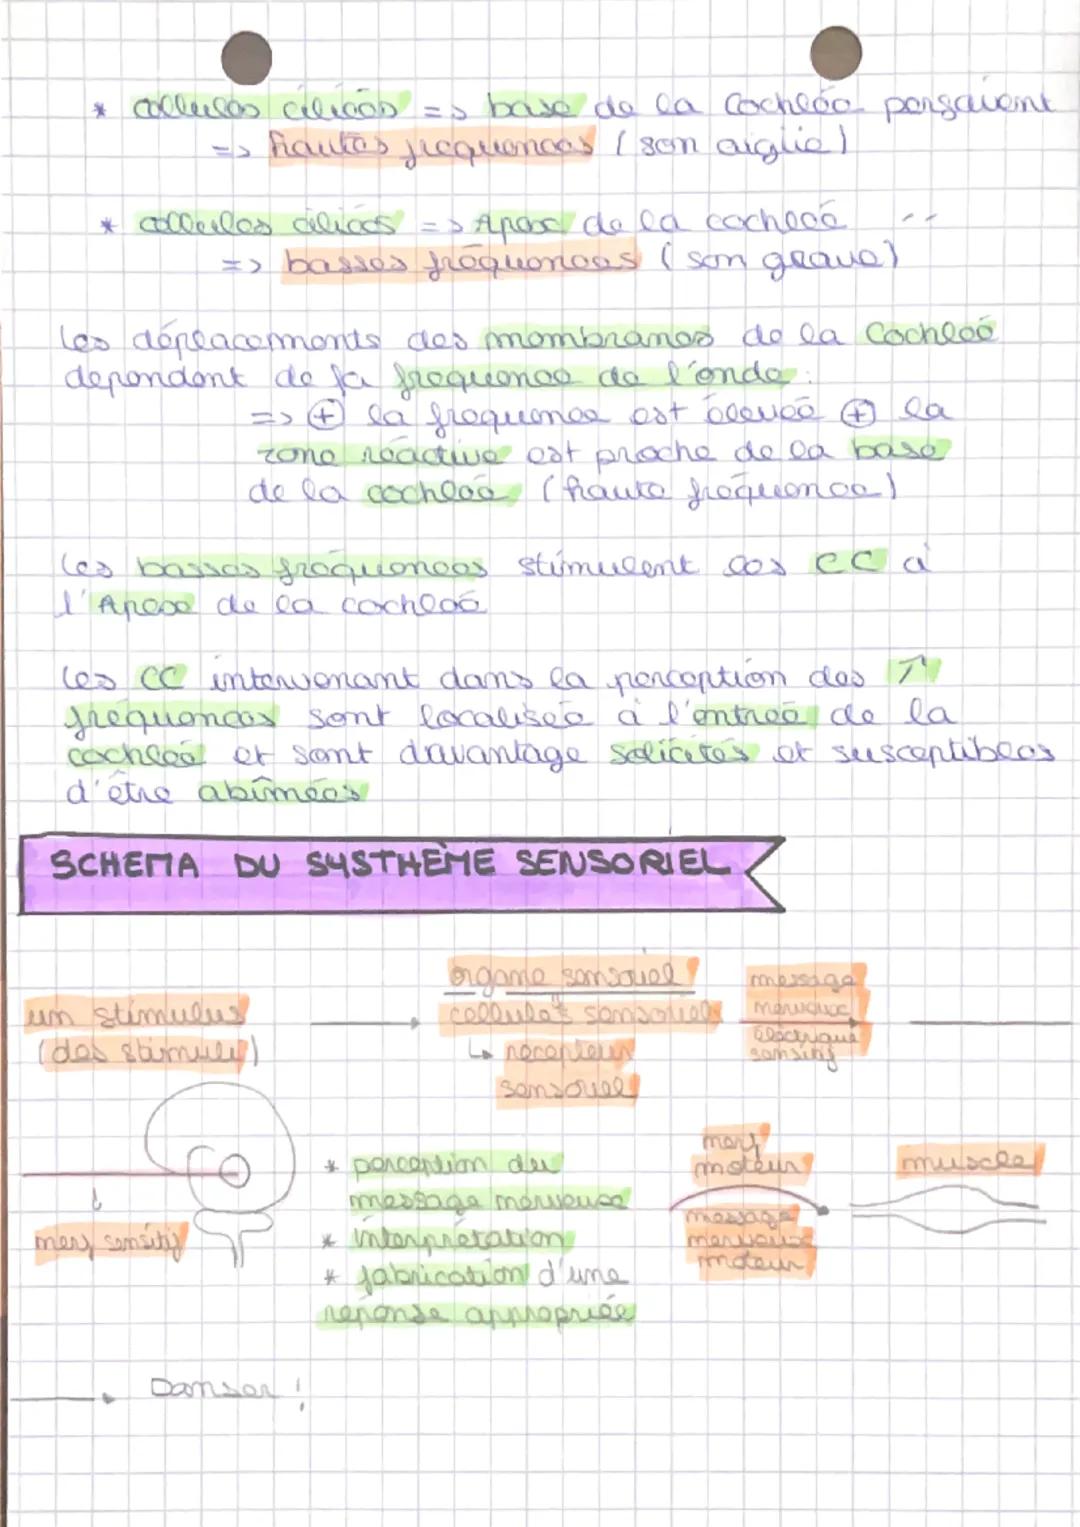 * cellules ciliées => base de la cochlée perçoivent
=> hautes fréquences (son aiglie)
* cellules ciliées => Apex de la cochléé --
=> basses fréquences (son grave)
Les déplacements des membranes de la Cochleé
dependent de la frequence de l'onde :
=> ⊕ la frequence est élevéé ⊕ la
zone réactive est proche de la base
de la cochleé (haute fréquence)
Les basses fréquences stimulent les CC à
l'Apexe de la cochleé
Les CC intervenant dans la perception des ↑
fréquences sont localiseé à l'entreé de la
cochleé et sont davantage solicités et susceptibles
d'être abîmées
SCHEMA DU SYSTHEME SENSORIEL
un stimulus
(des stimuli)
organe sensoriel
cellules sensoriels
↳ recepteur
sensoriel
message
nerveux
électrique
sensitif
nerf sensitif
* perception du
message nerveuse
* interprétation
* fabrication d'une
réponse appropriée
nerf
moteur
message
nerveux
moteur
muscle
Danser !